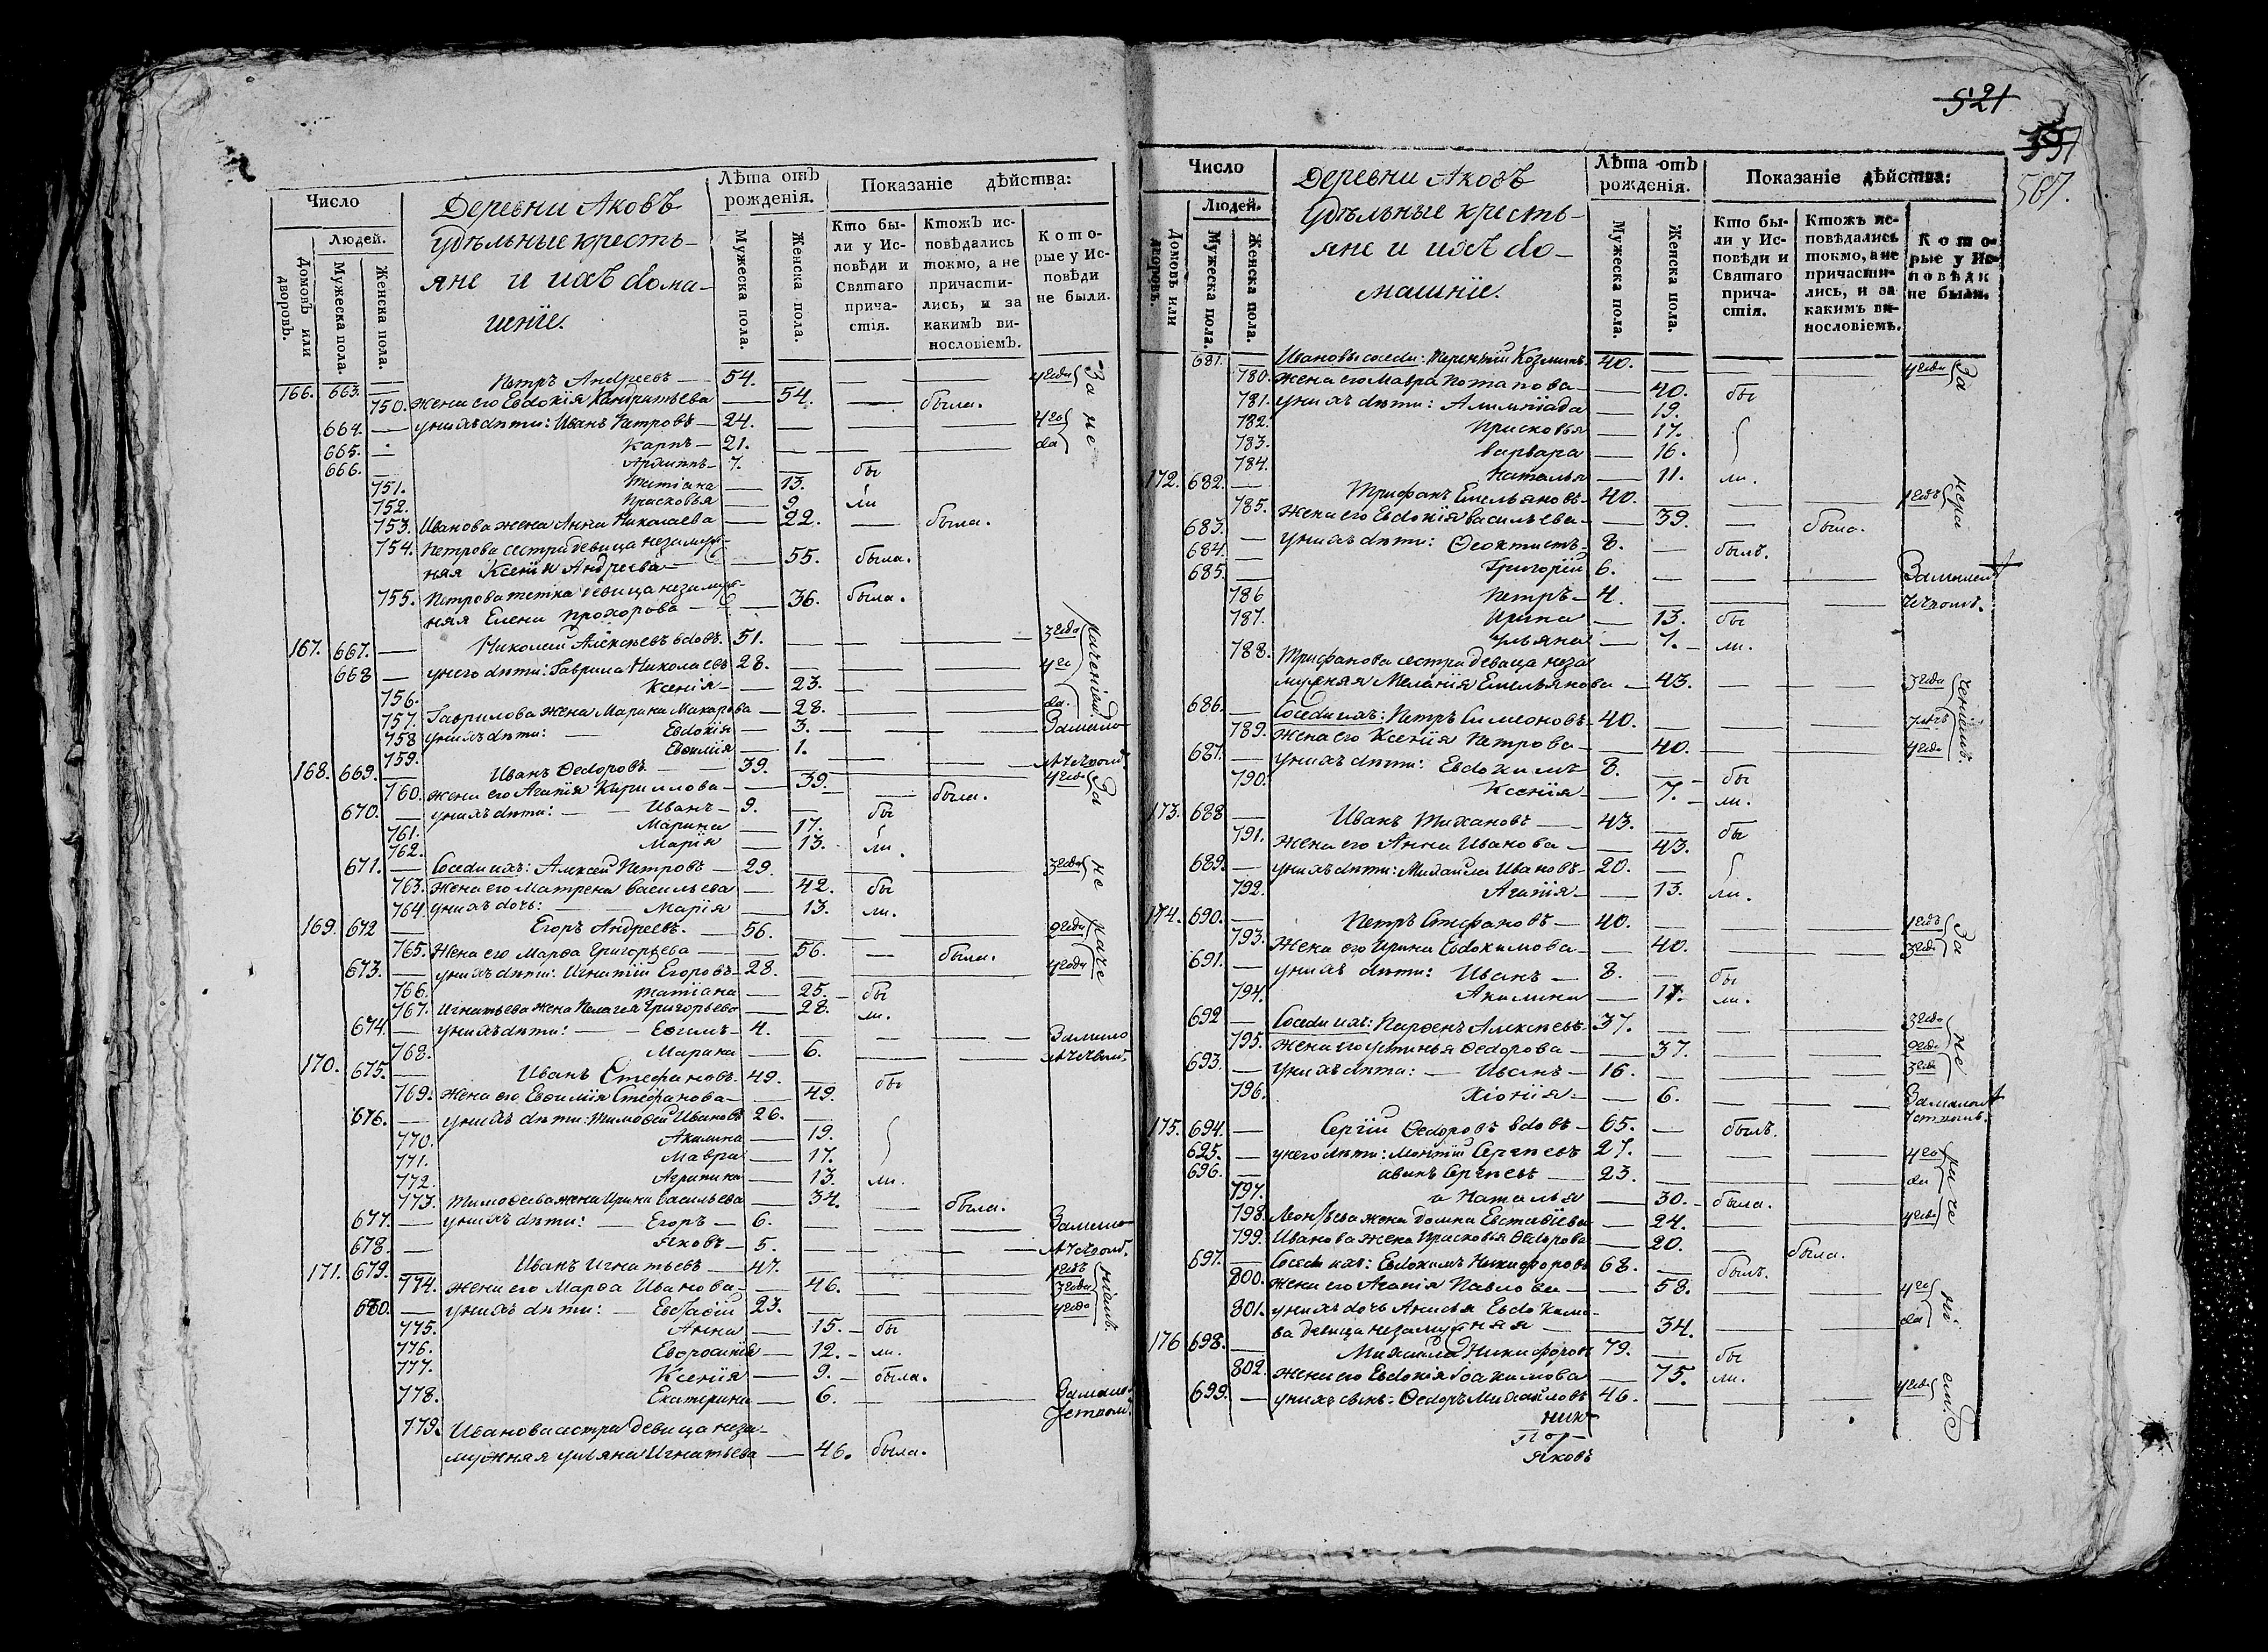 Число
Домовъ или дворовъ.
Людей.
Мужеска пола.
Женска пола.
Деревни Аковъ
удѣльные кресть-
яне и ихъ дома-
шніе.
Лѣта отъ рожденія.
Мужеска пола.
Женска пола.
Показаніе дѣйства:
Кто бы-
ли у Ис-
повѣди и
Святаго
прича-
стія.
Ктожъ ис-
повѣдались
токмо, а не
причасти-
лись, и за
какимъ ви-
нословіемъ.
Кото-
рые у Ис-
повѣди
не были.
166. 663. — Петръ Андреевъ — 54. — — — 4 года
750. жена его Евдокія Кандратьева — 54. — была.
664. — у нихъ дѣти: Иванъ Петровъ — 24. — — — 4 го
665. — Карпъ — 21. — — — да
666. — Архиппъ — 7. — бы
751. Татіана — 13.
752. Прасковья — 9. ли
753. Иванова жена Анна Николаева — 22. — была.
754. Петрова сестра девица незамуж-
няя Ксенія Андреева — 55. была.
755. Петрова тетка девица незамуж-
няя Елена Прохорова — 36. была.
167. 667. — Николай Алексѣевъ вдовъ. 51. — — — 3 года
668 — у него дѣти: Гаврила Николаевъ 28. — — — 4 го
756. Ксенія — 23. — —
757. Гаврилова жена Марина Макарова — 28. — — да.
758 у нихъ дѣти: — Евдокія — 3. — — — За мало
759. Евѳимія — 1. — — лѣтствомъ.
168. 669. — Иванъ Ѳедоровъ — 39. — — — 4 года
760. жена его Агапія Кирилова — 39. — была.
670. — у нихъ дѣти: — Иванъ — 9. бы
761. Марина — 17.
762. Марія — 13. ли.
671. — Соседи ихъ: Алексѣй Петровъ — 29. — — — 3 года
763. жена его Матрена Васильева — 42. бы
764. у нихъ дочь: — Марія — 13. ли.
169. 672 — Егоръ Андреевъ. — 56. — — — 2 года
765. Жена его Марѳа Григорьева — 56. — была.
673. — у нихъ дѣти: Игнатій Егоровъ — 28. — — — 4 года
766. Татіана — 25. — бы
767. Игнатьева жена Пелагея Григорьева — 28. ли.
674 — у нихъ дѣти: — Еѳимъ — 4. — — — За мало
768. Марина — 6. — — лѣтствомъ.
170. 675. — Иванъ Стефановъ. 49. — бы
769. Жена его Евѳимія Стефанова — 49.
676. — у нихъ дѣти: Тимоѳей Ивановъ 26. —
770. Акилина — 19.
771. Мавра — 17.
772. Агрипина — 13. ли.
773. Тимоѳеева жена Ирина Васильева — 34. — была.
677. — у нихъ дѣти: — Егоръ — 6. — — — За мало
678. — Яковъ — 5. — — — лѣтствомъ.
171. 679. — Иванъ Игнатьевъ — 47. — — — 1 годъ
774. жена его Марѳа Иванова — 46. — — 3 года
680. — у нихъ дѣти: — Евстафій 23. — — — 4 года
775. Анна — 15. — бы
776. Евфросинія — 12. — ли.
777. Ксенія — 9. — была.
778. Екатерина — 6. — — За мало-
779. Иванова сестра девица неза-
мужняя Ульяна Игнатьева — 46. была.
За не
раченіемъ
За
не
раче
ніемъ.
521
587.
Число
Домовъ или дворовъ.
Людей.
Мужеска пола.
Женска пола.
Деревни Аковъ
Удѣльные кресть-
яне и ихъ до-
машніе.
Лѣта отъ рожденія.
Мужеска пола.
Женска пола.
Показаніе дѣйства:
Кто бы-
ли у Ис-
повѣди и
Святаго
прича-
стія.
Ктожъ ис-
повѣдались
токмо, а не
причасти-
лись, и за
какимъ ви-
нословіемъ.
Кото-
рые у Ис-
повѣди
не были.
681. — Ивановы соседи: Терентій Козминъ — 40. — — — 4 года
780. жена его Мавра Потапова — 40. бы
781. у нихъ дѣти: Алимпіада — 19.
782. Прасковья — 17.
783. Варвара — 16.
784. Наталья — 11. ли.
172. 682. — Трифанъ Емельяновъ — 40. — — — 1 годъ
785. Жена его Евдокія Васильева — 39. — была.
683. — у нихъ дѣти: Ѳеоктистъ — 8. — былъ.
684. — Григорій 6. — — — За малолѣт
685. — Петръ — 4. — — — ствомъ.
786 Ирина — 13. бы
787. Ульяна — 7. — ли.
788. Трифанова сестра девица неза
мужняя Меланія Емельянова — 43. — — 3 года
686. — Соседи ихъ: Петръ Симеоновъ — 40. — — — 7 лѣтъ
789. Жена его Ксенія Петрова — 40. — — 4 года
687. — у нихъ дѣти: Евдокимъ 8. — бы
790. Ксенія — 7. — ли.
173. 688 — Иванъ Тихановъ — 43. — бы
791. Жена его Анна Иванова — 43.
689. — у нихъ дѣти: Михайла Ивановъ — 20. —
792. Агапія — 13. ли.
174. 690. — Петръ Стефановъ — 40. — — — 1 годъ
793. Жена его Ирина Евдокимова — 40. — — 3 года
691. — у нихъ дѣти: Иванъ — 8. — бы
794. Акилина — 11. ли.
692 — Соседи ихъ: Парѳенъ Алексѣевъ — 37. — — — 3 года
795. Жена его Устинья Ѳедорова — 37. — — 2 года
693. — у нихъ дѣти: — Иванъ — 16. — — — 3 года
796. Хіонія — 6. — — За малолѣт
ствомъ.
175. 694. — Сергій Ѳедоровъ вдовъ — 65. — былъ.
695. — у него дѣти: Леонтій Сергѣевъ 27. — — — 4 го
696. — Иванъ Сергѣевъ — 23. — — — да
797. Наталья — 30. — была.
798. Леонтьева жена Домна Евстафіева — 24. — — 4 года
799. Иванова жена Прасковія Ѳедорова — 20. — была.
697. — Соседи ихъ: Евдокимъ Никифоровъ 68. — былъ.
800. Жена его Агапія Павлова — 58. — — 4 го
801. у нихъ дочь Анисья Евдокимо-
ва девица незамужняя — 34. — — да
176 698. — Михайла Никифоровъ 79. — бы
802. Жена его Евдокія Іоакимова — 75. ли.
699. — у нихъ сынъ: Ѳедоръ Михайловъ 46. — — — 4 года
За
нера
ченіемъ.
За
не
раче
ні
емъ.
Яковъ